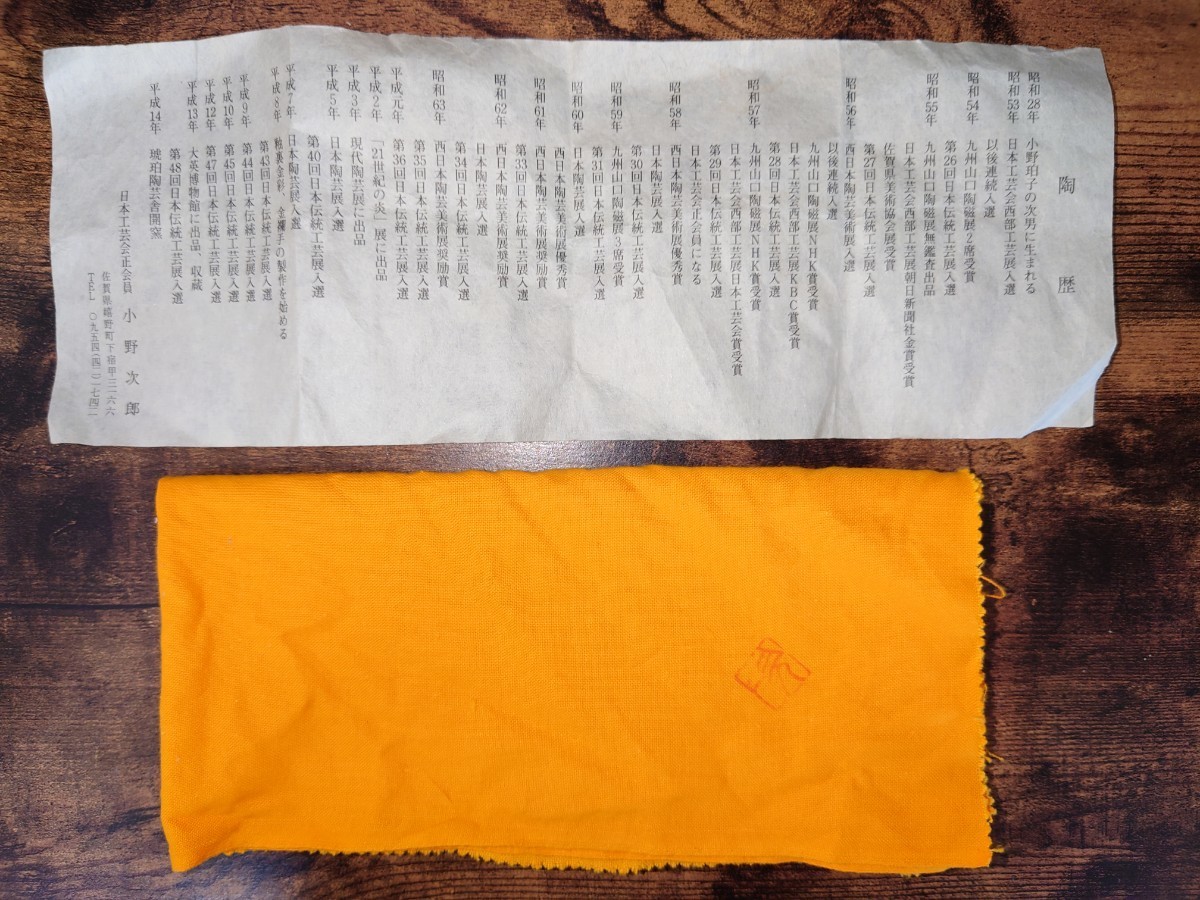 陶歴
昭和28年 小野珀子の次男に生まれる
昭和53年 日本工芸会西部工芸展入選
以後連続入選
昭和54年 九州山口陶磁展2席受賞
第26回日本伝統工芸展入選
昭和55年 九州山口陶磁展無鑑査出品
日本工芸会西部工芸展朝日新聞社金賞受賞
佐賀県美術協会展受賞
第27回日本伝統工芸展入選
昭和56年 西日本陶芸美術展入選
以後連続入選
九州山口陶磁展NHK賞受賞
日本工芸会西部工芸展KBC賞受賞
第28回日本伝統工芸展入選
昭和57年 九州山口陶磁展NHK賞受賞
日本工芸会西部工芸展日本工芸会賞受賞
第29回日本伝統工芸展入選
日本工芸会正会員になる
昭和58年 西日本陶芸美術展優秀賞
日本陶芸展入選
第30回日本伝統工芸展入選
昭和59年 九州山口陶磁展3席受賞
第31回日本伝統工芸展入選
昭和60年 日本陶芸展入選
西日本陶芸美術展優秀賞
昭和61年 西日本陶芸美術展奨励賞
第33回日本伝統工芸展入選
昭和62年 西日本陶芸美術展奨励賞
日本陶芸展入選
第34回日本伝統工芸展入選
昭和63年 西日本陶芸美術展奨励賞
第35回日本伝統工芸展入選
平成元年 第36回日本伝統工芸展入選
平成2年 「21世紀の炎」展に出品
平成3年 現代陶芸展に出品
平成5年 日本陶芸展入選
第40回日本伝統工芸展入選
平成7年 日本陶芸展入選
平成8年 釉裏金彩 金襴手の製作を始める
第43回日本伝統工芸展入選
平成9年 第44回日本伝統工芸展入選
平成10年 第45回日本伝統工芸展入選
平成12年 第47回日本伝統工芸展入選
平成13年 大英博物館に出品、収蔵
第48回日本伝統工芸展入選
平成14年 琥珀陶芸舎開窯
日本工芸会正会員 小野次郎
佐賀県嬉野町下宿甲三一六六
TEL 〇九五四(四二)一七四二